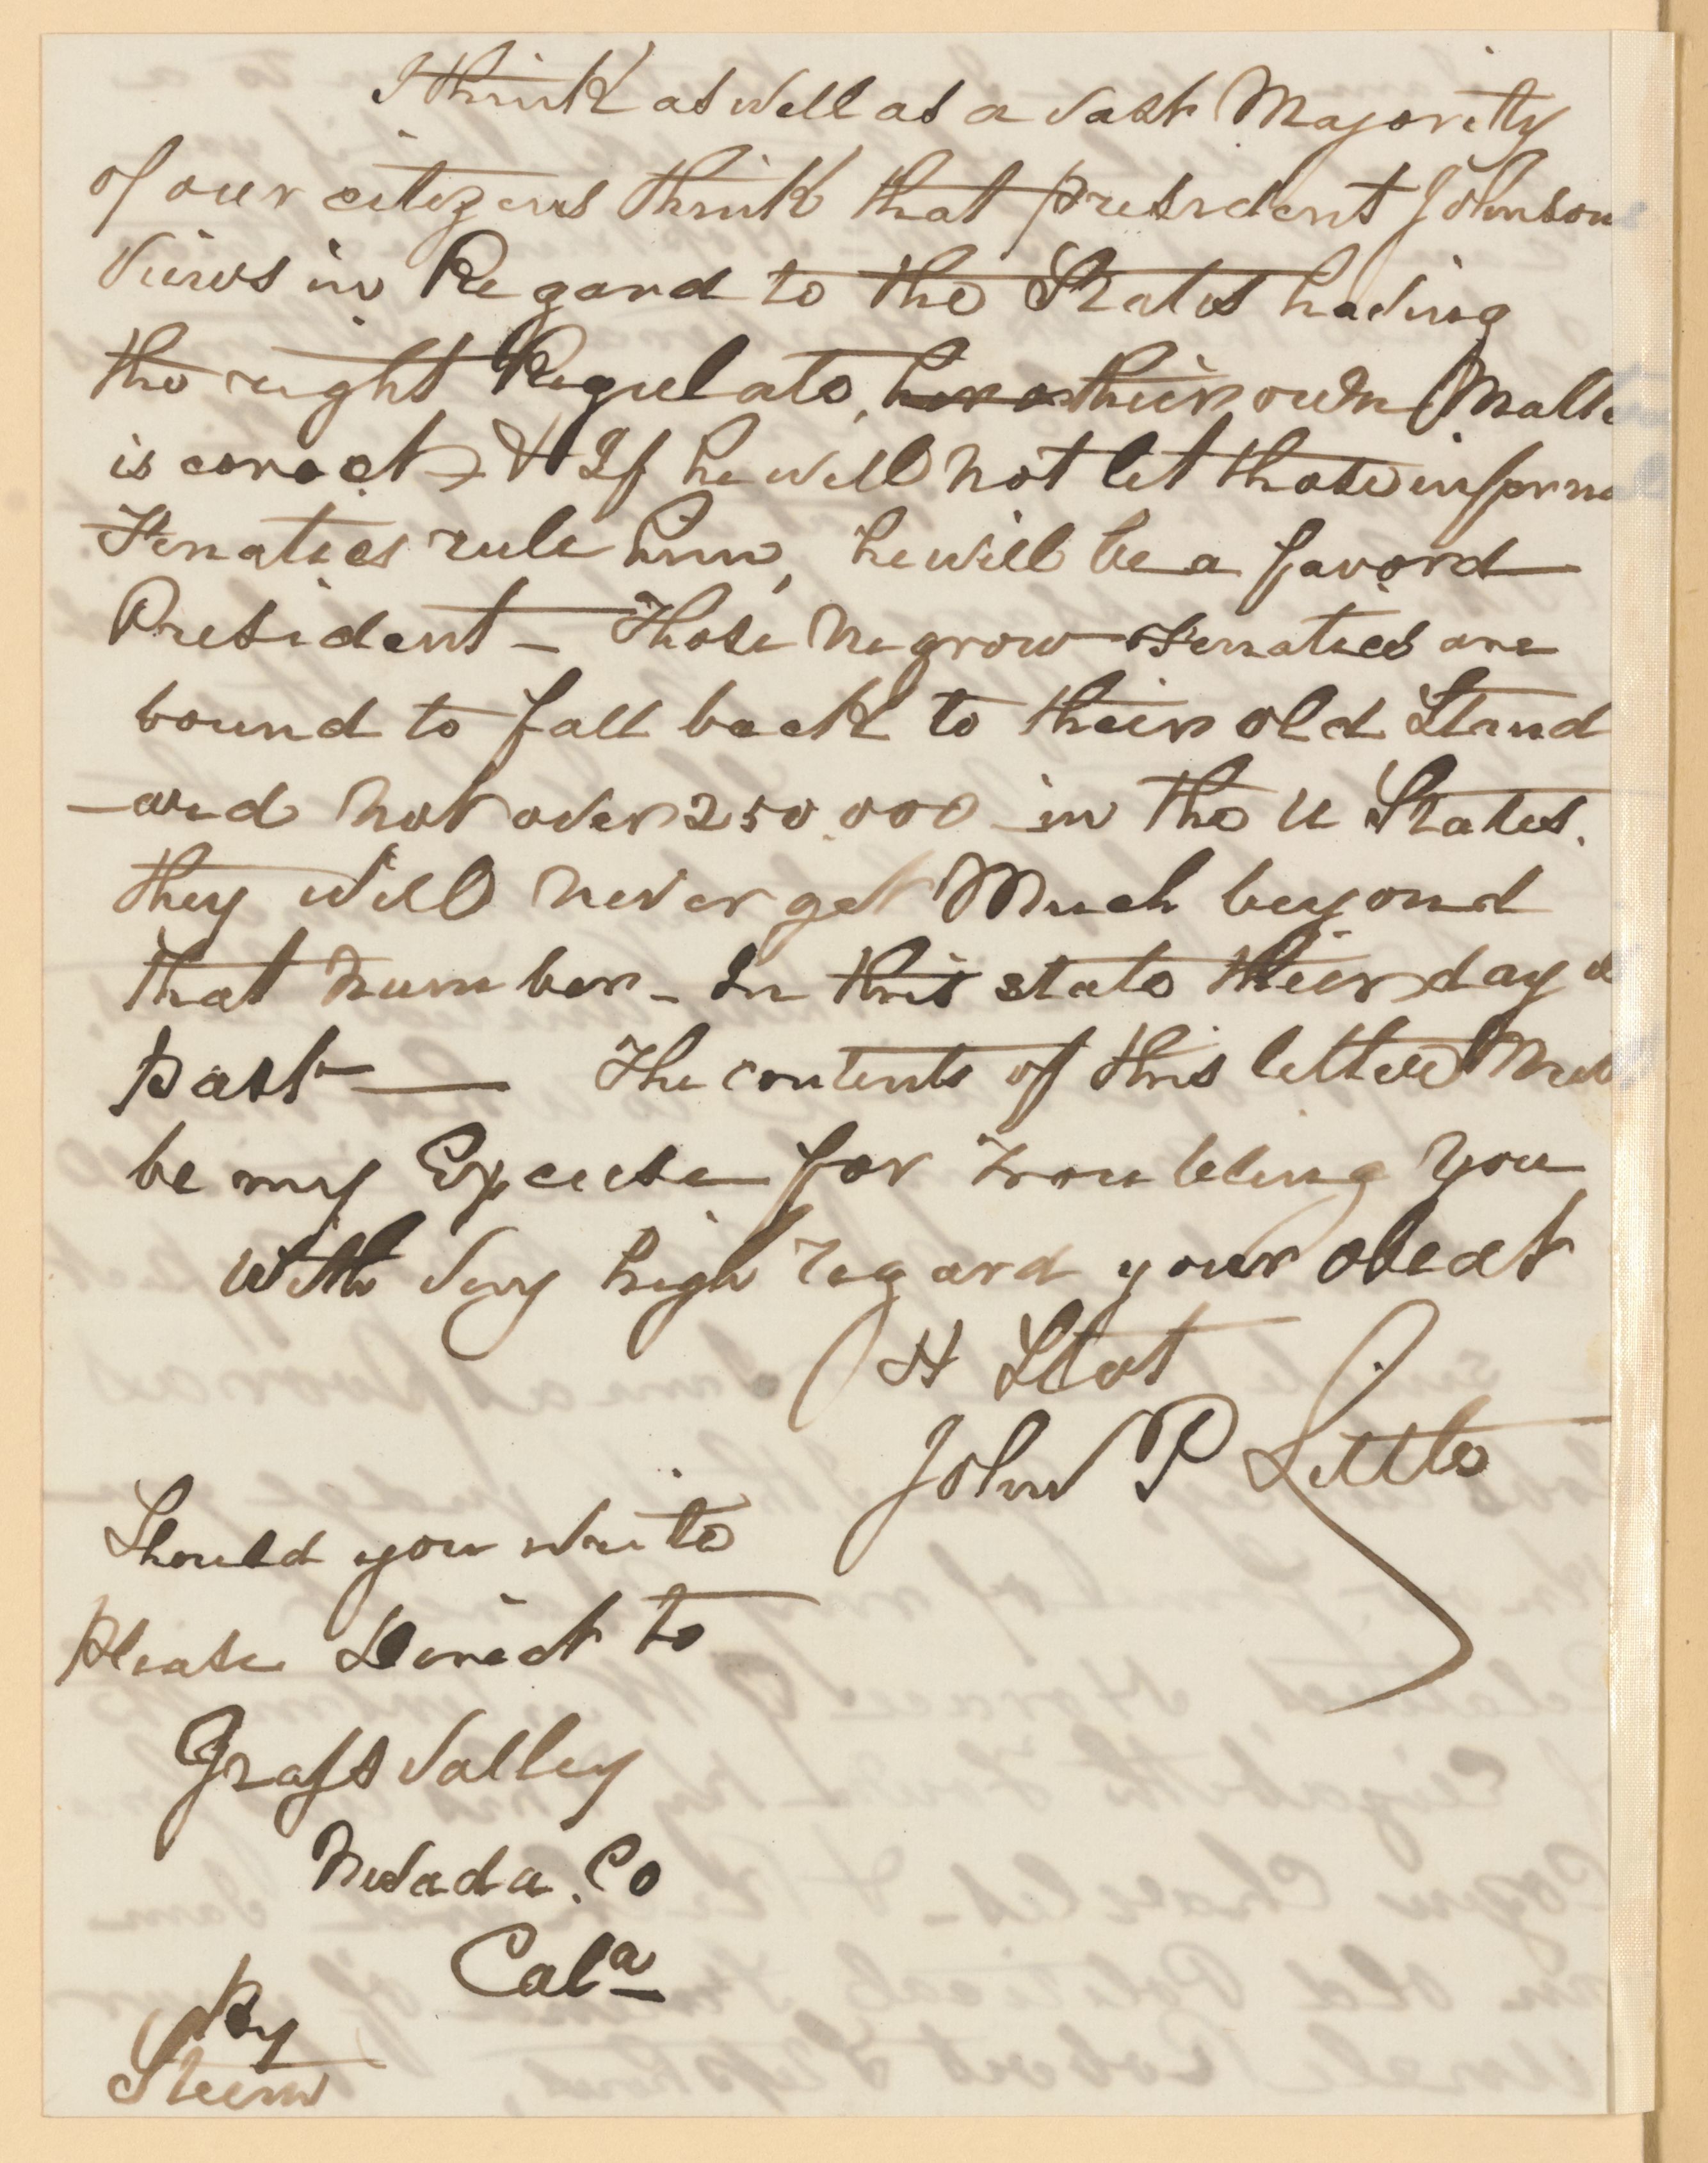 I think as well as a vast Majority
of our citizens think that president Johnson
views in Regard to the States having
the right Regulate, their own Matte
is corect, & If he will not let those inferna
Fenatics rule him, he will be a favord
President – Those Negrow Fenatics are
bound to fall back to their old Stand
– and not over 250.000 in the U States.
they will never get Much beyond
that number – In this state their day is
past — The contents of this letter Mus
be my Excuse for troubling you
With Very high regard your obedt
H Svt
John P Little
Should you write
please Direct to
Grass Valley
Nevada. Co
Cala
By
Steem